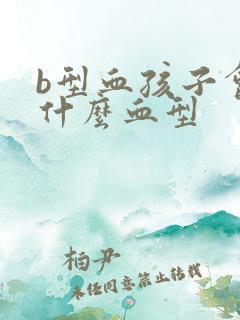 b型血孩子会
什麽血型
柏尹
未经同意禁止转载